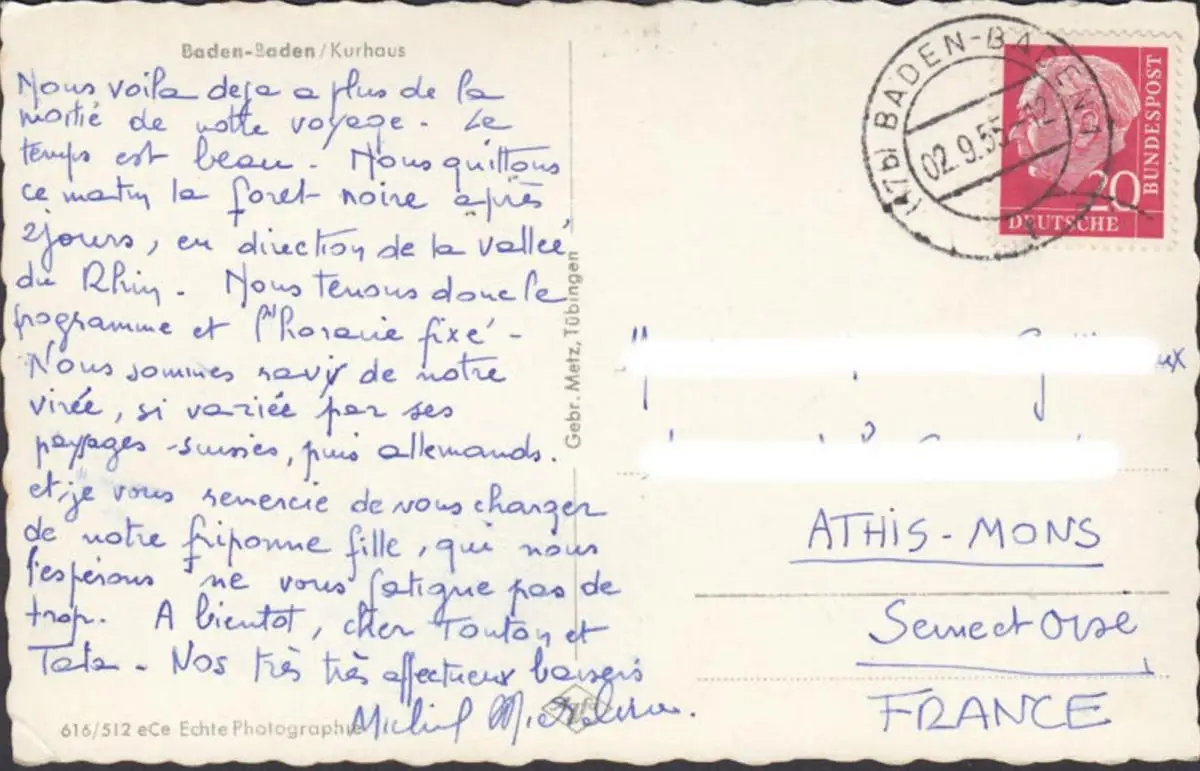 Baden-Baden / Kurhaus
Nous voila deja a plus de la
moitié de notre voyage. Le
temps est beau. Nous quittons
ce matin la foret noire après
2 jours, en direction de la vallée
du Rhin. Nous tenons donc le
programme et l'horaire fixé -
Nous sommes ravis de notre
virée, si variée par ses
paysages suisses, puis allemands.
et je vous remercie de vous charger
de notre friponne fille, qui nous
l'espérons ne vous fatigue pas de
trop. A bientot, cher Tonton et
Tata - Nos très très affectueux baisers
Michel
616/512 eCe Echte Photographie
Gebr. Metz, Tübingen
(17b) BADEN-BADEN
02.9.55-12
DEUTSCHE BUNDESPOST
20
ATHIS-MONS
Seine et Oise
FRANCE